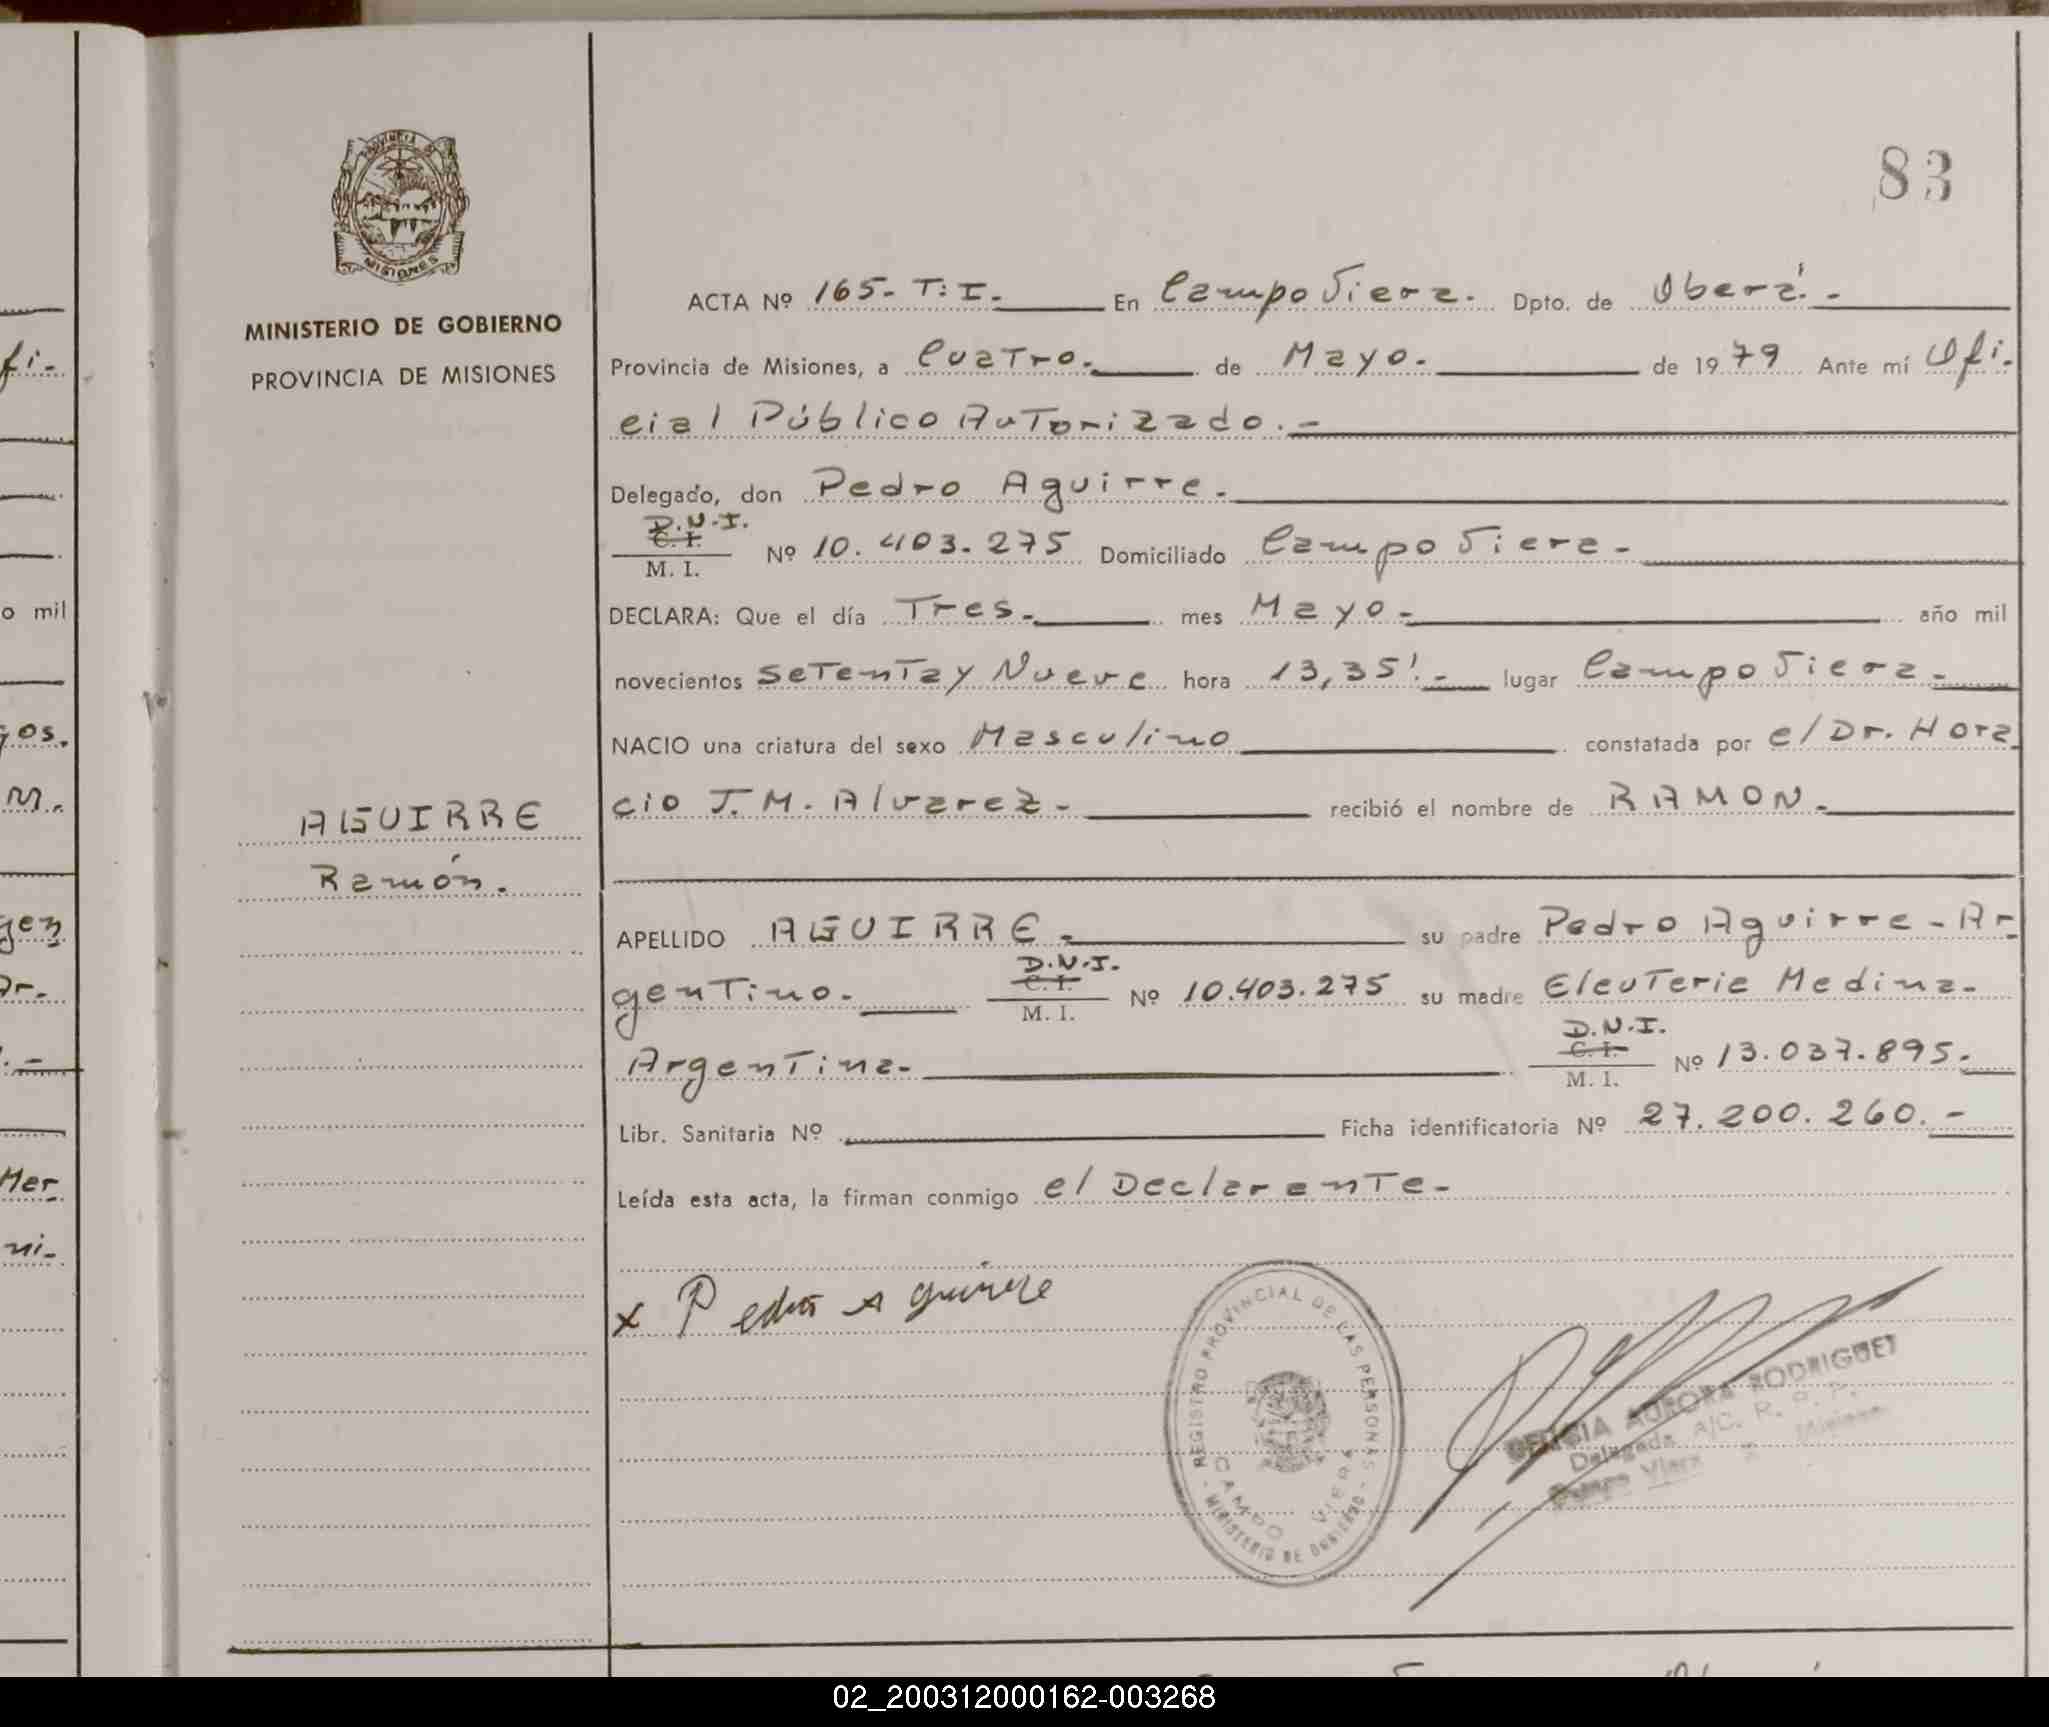 83
PROVINCIA DE
MISIONES
MINISTERIO DE GOBIERNO
PROVINCIA DE MISIONES
AGUIRRE
Ramón.
ACTA Nº 165- T: I. En Campo Viera. Dpto. de Oberá.-
Provincia de Misiones, a Cuatro. de Mayo. de 1979 Ante mí Ofi-
cial Público Autorizado.-
Delegado, don Pedro Aguirre.
D.N.I.
C. I.
M. I. Nº 10.403.275 Domiciliado Campo Viera-
DECLARA: Que el día Tres. mes Mayo. año mil
novecientos Setenta y Nueve hora 13,35'.- lugar Campo Viera-
NACIO una criatura del sexo Masculino constatada por el Dr. Hora
cio J. M. Alvarez- recibió el nombre de RAMON.
APELLIDO AGUIRRE. su padre Pedro Aguirre - Ar-
gentino. D.N.I. C. I. M. I. Nº 10.403.275 su madre Eleuterie Medina-
Argentina- D.N.I. C. I. M. I. Nº 13.037.895.
Libr. Sanitaria Nº Ficha identificatoria Nº 27.200.260.-
Leída esta acta, la firman conmigo el Declarante-
x Pedro Aguirre
REGISTRO PROVINCIAL DE LAS PERSONAS
- MINISTERIO DE GOBIERNO -
CAMPO VIERA
AURORA RODRIGUEZ
Delegada A/C. R. P. P.
Campo Viera Misiones
fi-
o mil
gos.
m.
gen
Ar-
Mer
ni-
02_200312000162-003268